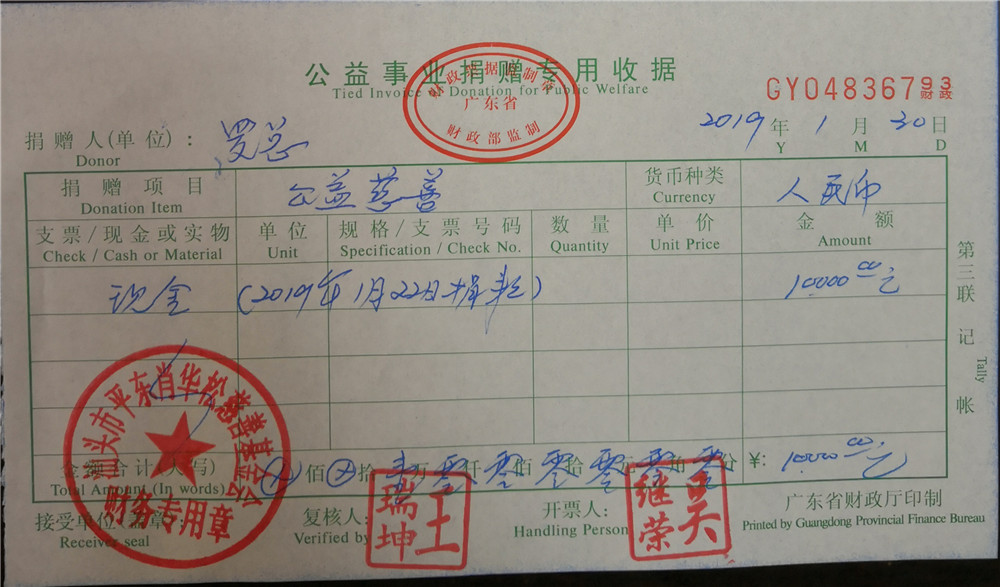 公益事业捐赠专用收据
Tied Invoice of Donation for Public Welfare
财政票据监制章
广东省
财政部监制
GY04836793
财政
捐赠人(单位)：罗总
Donor
2019年1月30日
Y M D
捐赠项目 公益慈善 货币种类 人民币
Donation Item Currency
支票/现金或实物 单位 规格/支票号码 数量 单价 金额
Check / Cash or Material Unit Specification / Check No. Quantity Unit Price Amount
现金 (2019年1月22日捐款) 10000.00元
第三联 记帐
Tally
金额合计(大写) ⊗佰⊗拾壹万零仟零佰零拾零元零角零分 ￥:10000.00元
Total Amount (In words)
汕头市平东肖华松慈善基金会
财务专用章
接受单位 盖章
Receiver seal
复核人:
Verified by
王瑞坤
开票人:
Handling Person
吴继荣
广东省财政厅印制
Printed by Guangdong Provincial Finance Bureau